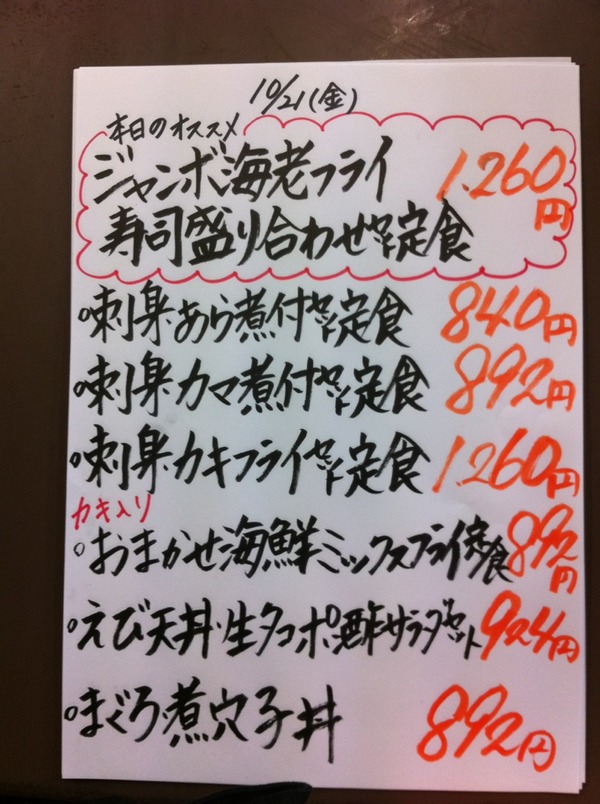 10/21(金)
本日のオススメ
ジャンボ海老フライ 1.260円
寿司盛り合わせセット定食
○刺身・あら煮付セット定食 840円
○刺身・カマ煮付セット定食 892円
○刺身・カキフライセット定食 1.260円
カキ入り
○おまかせ海鮮ミックスフライ定食 892円
○えび天丼・生タコポン酢サラダセット 924円
○まぐろ・煮穴子丼 892円